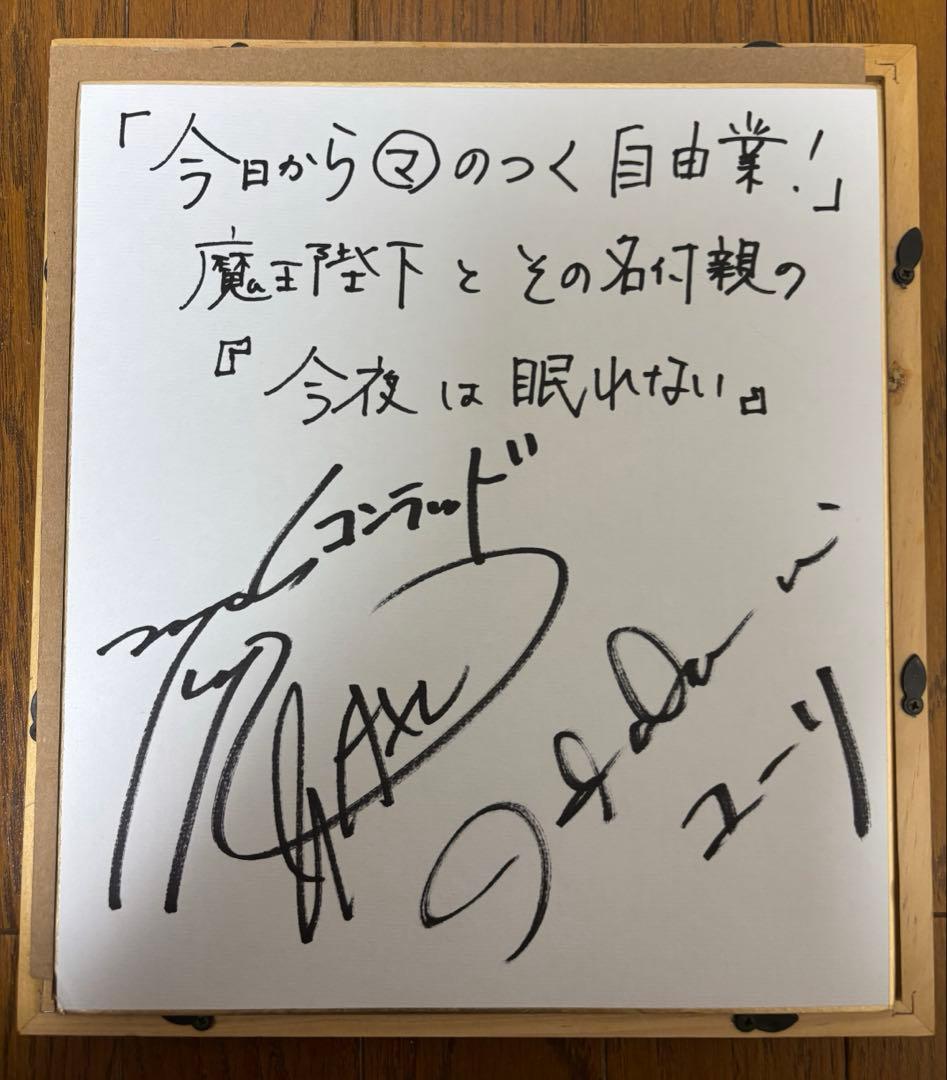 「今日から㋮のつく自由業！」
魔王陛下とその名付親の
『今夜は眠れない』
コンラッド
ユーリ